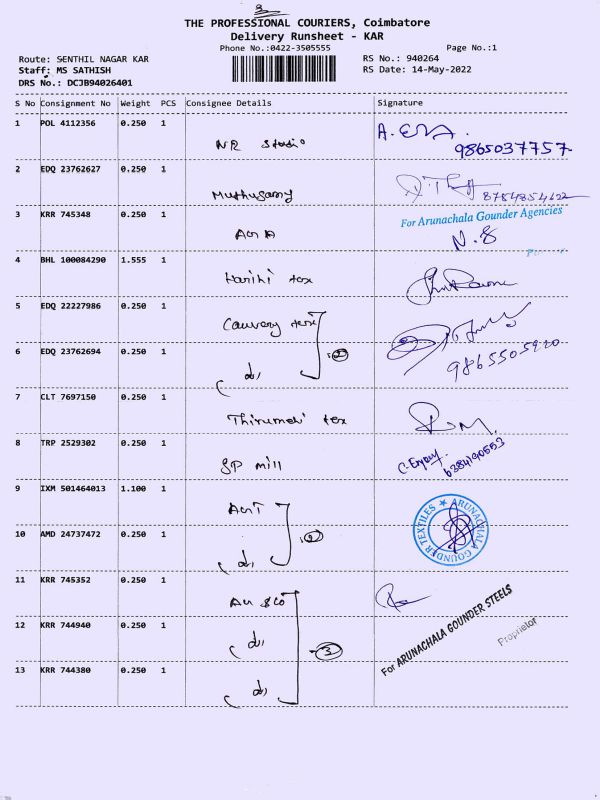 3
THE PROFESSIONAL COURIERS, Coimbatore
Delivery Runsheet - KAR
Phone No.:0422-3505555
Page No.:1
Route: SENTHIL NAGAR KAR
RS No.: 940264
Staff: MS SATHISH
RS Date: 14-May-2022
DRS No.: DCJB94026401
S No Consignment No Weight PCS Consignee Details Signature
1 POL 4112356 0.250 1
NR Studio
9865037757
2 EDQ 23762627 0.250 1
Muthusamy
8754854622
3 KRR 745348 0.250 1
For Arunachala Gounder Agencies
N.S
4 BHL 100084290 1.555 1
Harini tex
5 EDQ 22227986 0.250 1
Cauvery tex
2
6 EDQ 23762694 0.250 1
9865505920
7 CLT 7697150 0.250 1
Thirumal tex
8 TRP 2529302 0.250 1
SP mill
6384190553
9 IXM 501464013 1.100 1
AGT
2
ARUNACHALA GOUNDER TEXTILES
10 AMD 24737472 0.250 1
11 KRR 745352 0.250 1
12 KRR 744940 0.250 1
3
For ARUNACHALA GOUNDER STEELS
Proprietor
13 KRR 744380 0.250 1